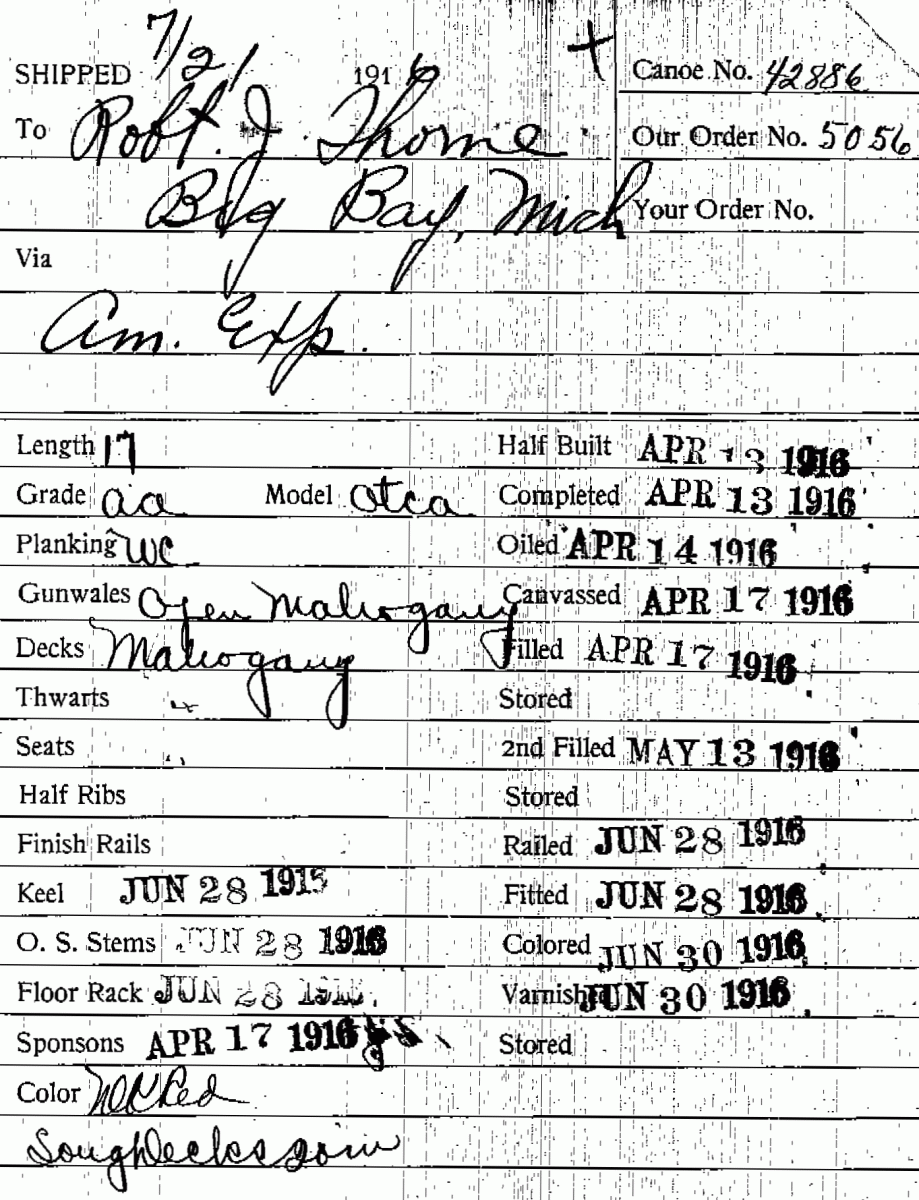 SHIPPED 7/21 1916 Canoe No. 42886
To Robt. J. Thorne Our Order No. 5056
Big Bay, Mich Your Order No.
Via
Am. Exp.
Length 17 Half Built APR 13 1916
Grade aa Model otca Completed APR 13 1916
Planking WC Oiled APR 14 1916
Gunwales Open Mahogany Canvassed APR 17 1916
Decks Mahogany Filled APR 17 1916
Thwarts " Stored
Seats " 2nd Filled MAY 13 1916
Half Ribs Stored
Finish Rails Railed JUN 28 1916
Keel JUN 28 1916 Fitted JUN 28 1916
O. S. Stems JUN 28 1916 Colored JUN 30 1916
Floor Rack JUN 28 1916 Varnished JUN 30 1916
Sponsons APR 17 1916 Stored
Color Red
Long Decks 20in